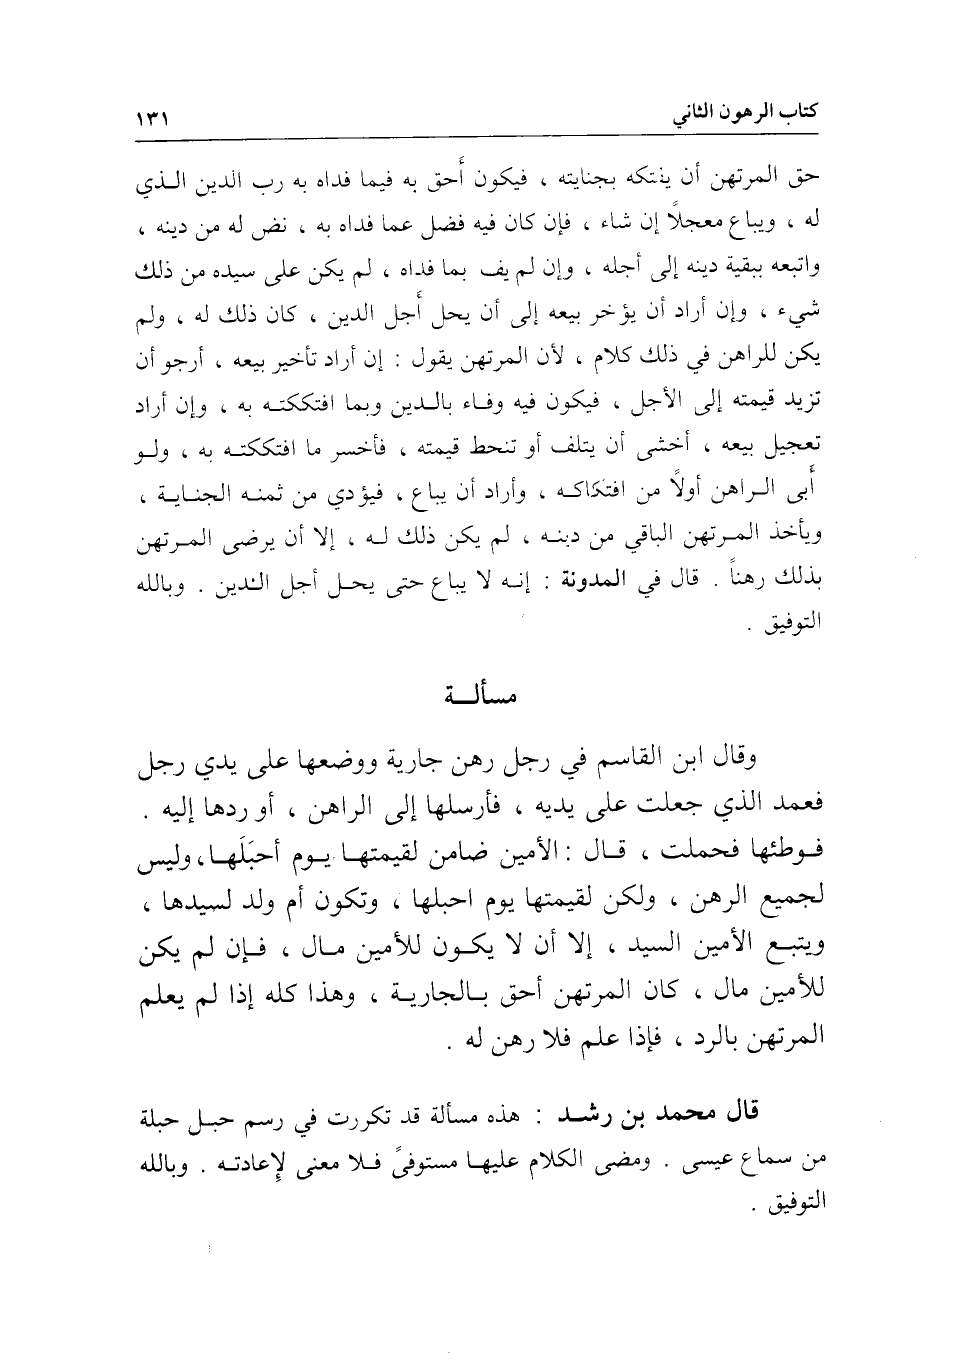 كتاب الرهون الثاني
١٣١
حق المرتهن أن يفتكه بجنايته ، فيكون أحق به فيما فداه به رب الدين الذي
له ، ويباع معجلاً إن شاء ، فإن كان فيه فضل عما فداه به ، نض له من دينه ،
واتبعه ببقية دينه إلى أجله ، وإن لم يف بما فداه ، لم يكن على سيده من ذلك
شيء ، وإن أراد أن يؤخر بيعه إلى أن يحل أجل الدين ، كان ذلك له ، ولم
يكن للراهن في ذلك كلام ، لأن المرتهن يقول : إن أراد تأخير بيعه ، أرجو أن
تزيد قيمته إلى الأجل ، فيكون فيه وفاء بالدين وبما افتككته به ، وإن أراد
تعجيل بيعه ، أخشى أن يتلف أو تنحط قيمته ، فأخسر ما افتككته به ، ولو
أبى الراهن أولاً من افتكاكه ، وأراد أن يباع ، فيؤدي من ثمنه الجناية ،
ويأخذ المرتهن الباقي من دينه ، لم يكن ذلك له ، إلا أن يرضى المرتهن
بذلك رهناً . قال في المدونة : إنه لا يباع حتى يحل أجل الدين . وبالله
التوفيق .
مسألة
وقال ابن القاسم في رجل رهن جارية ووضعها على يدي رجل
فعمد الذي جعلت على يديه ، فأرسلها إلى الراهن ، أو ردها إليه .
فوطئها فحملت ، قال : الأمين ضامن لقيمتها يوم أحبَلَها ، وليس
لجميع الرهن ، ولكن لقيمتها يوم احبلها ، وتكون أم ولد لسيدها ،
ويتبع الأمين السيد ، إلا أن لا يكون للأمين مال ، فإن لم يكن
للأمين مال ، كان المرتهن أحق بالجارية ، وهذا كله إذا لم يعلم
المرتهن بالرد ، فإذا علم فلا رهن له .
قال محمد بن رشد : هذه مسألة قد تكررت في رسم حبل حبلة
من سماع عيسى . ومضى الكلام عليها مستوفىً فلا معنى لإعادته . وبالله
التوفيق .